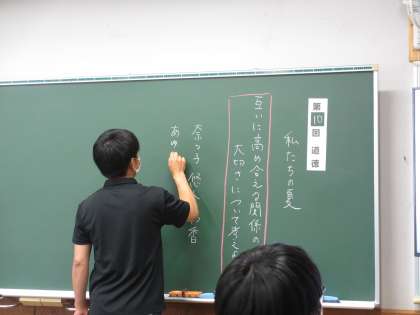 第10回 道徳
私たちの夏
互いに高め合える関係の
大切さについて考え
奈々子 悠 香
あゆ